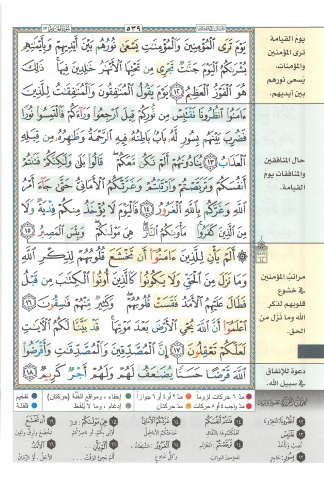 ٥٣٩
يَوْمَ تَرَى الْمُؤْمِنِينَ وَالْمُؤْمِنَاتِ يَسْعَى نُورُهُم بَيْنَ أَيْدِيهِمْ وَبِأَيْمَانِهِم
بُشْرَاكُمُ الْيَوْمَ جَنَّاتٌ تَجْرِي مِن تَحْتِهَا الْأَنْهَارُ خَالِدِينَ فِيهَا ذَلِكَ
هُوَ الْفَوْزُ الْعَظِيمُ ١٢ يَوْمَ يَقُولُ الْمُنَافِقُونَ وَالْمُنَافِقَاتُ لِلَّذِينَ
ءَامَنُوا انظُرُونَا نَقْتَبِسْ مِن نُّورِكُمْ قِيلَ ارْجِعُوا وَرَاءَكُمْ فَالْتَمِسُوا نُورًا
فَضُرِبَ بَيْنَهُم بِسُورٍ لَّهُ بَابٌ بَاطِنُهُ فِيهِ الرَّحْمَةُ وَظَاهِرُهُ مِن قِبَلِهِ
الْعَذَابُ ١٣ يُنَادُونَهُمْ أَلَمْ نَكُن مَّعَكُمْ قَالُوا بَلَى وَلَكِنَّكُمْ فَتَنتُمْ
أَنفُسَكُمْ وَتَرَبَّصْتُمْ وَارْتَبْتُمْ وَغَرَّتْكُمُ الْأَمَانِيُّ حَتَّى جَاءَ أَمْرُ
اللَّهِ وَغَرَّكُم بِاللَّهِ الْغَرُورُ ١٤ فَالْيَوْمَ لَا يُؤْخَذُ مِنكُمْ فِدْيَةٌ وَلَا
مِنَ الَّذِينَ كَفَرُوا مَأْوَاكُمُ النَّارُ هِيَ مَوْلَاكُمْ وَبِئْسَ الْمَصِيرُ ١٥
أَلَمْ يَأْنِ لِلَّذِينَ ءَامَنُوا أَن تَخْشَعَ قُلُوبُهُمْ لِذِكْرِ اللَّهِ
وَمَا نَزَلَ مِنَ الْحَقِّ وَلَا يَكُونُوا كَالَّذِينَ أُوتُوا الْكِتَابَ مِن قَبْلُ
فَطَالَ عَلَيْهِمُ الْأَمَدُ فَقَسَتْ قُلُوبُهُمْ وَكَثِيرٌ مِّنْهُمْ فَاسِقُونَ ١٦
اعْلَمُوا أَنَّ اللَّهَ يُحْيِي الْأَرْضَ بَعْدَ مَوْتِهَا قَدْ بَيَّنَّا لَكُمُ الْآيَاتِ
لَعَلَّكُمْ تَعْقِلُونَ ١٧ إِنَّ الْمُصَّدِّقِينَ وَالْمُصَّدِّقَاتِ وَأَقْرَضُوا
اللَّهَ قَرْضًا حَسَنًا يُضَاعَفُ لَهُمْ وَلَهُمْ أَجْرٌ كَرِيمٌ ١٨
يوم القيامة
ترى المؤمنين
والمؤمنات،
يسعى نورهم
بين أيديهم.
حال المنافقين
والمنافقات يوم
القيامة.
مراتب المؤمنين
في خشوع
قلوبهم لذكر
الله وما نزل من
الحق.
دعوة للإنفاق
في سبيل الله.